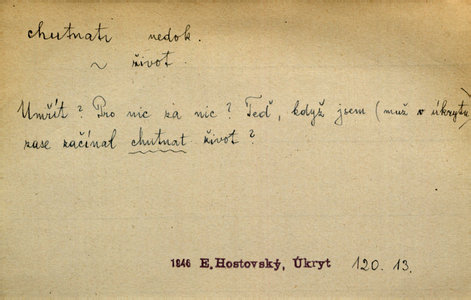 chutnati nedok.
~ život.
Umřít? Pro nic za nic? Teď, když jsem (muž v úkrytu)
zase začínal chutnat život?
1946 E. Hostovský, Úkryt 120. 13.